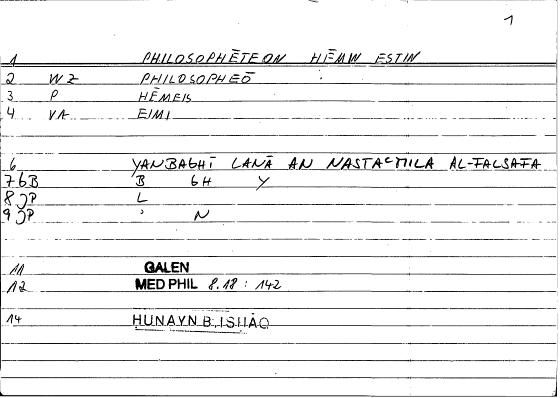 1
1 PHILOSOPHĒTEON HĒMIN ESTIN
2 WZ PHILOSOPHEŌ
3 P HĒMEIS
4 VA EIMI
6 YANBAGHĪ LANĀ AN NASTAʿMILA AL-FALSAFA
7 6B B GH Y
8 JP L
9 JP ʾ N
11 GALEN
12 MED PHIL 8.18 : 142
14 HUNAYN B. ISHĀQ